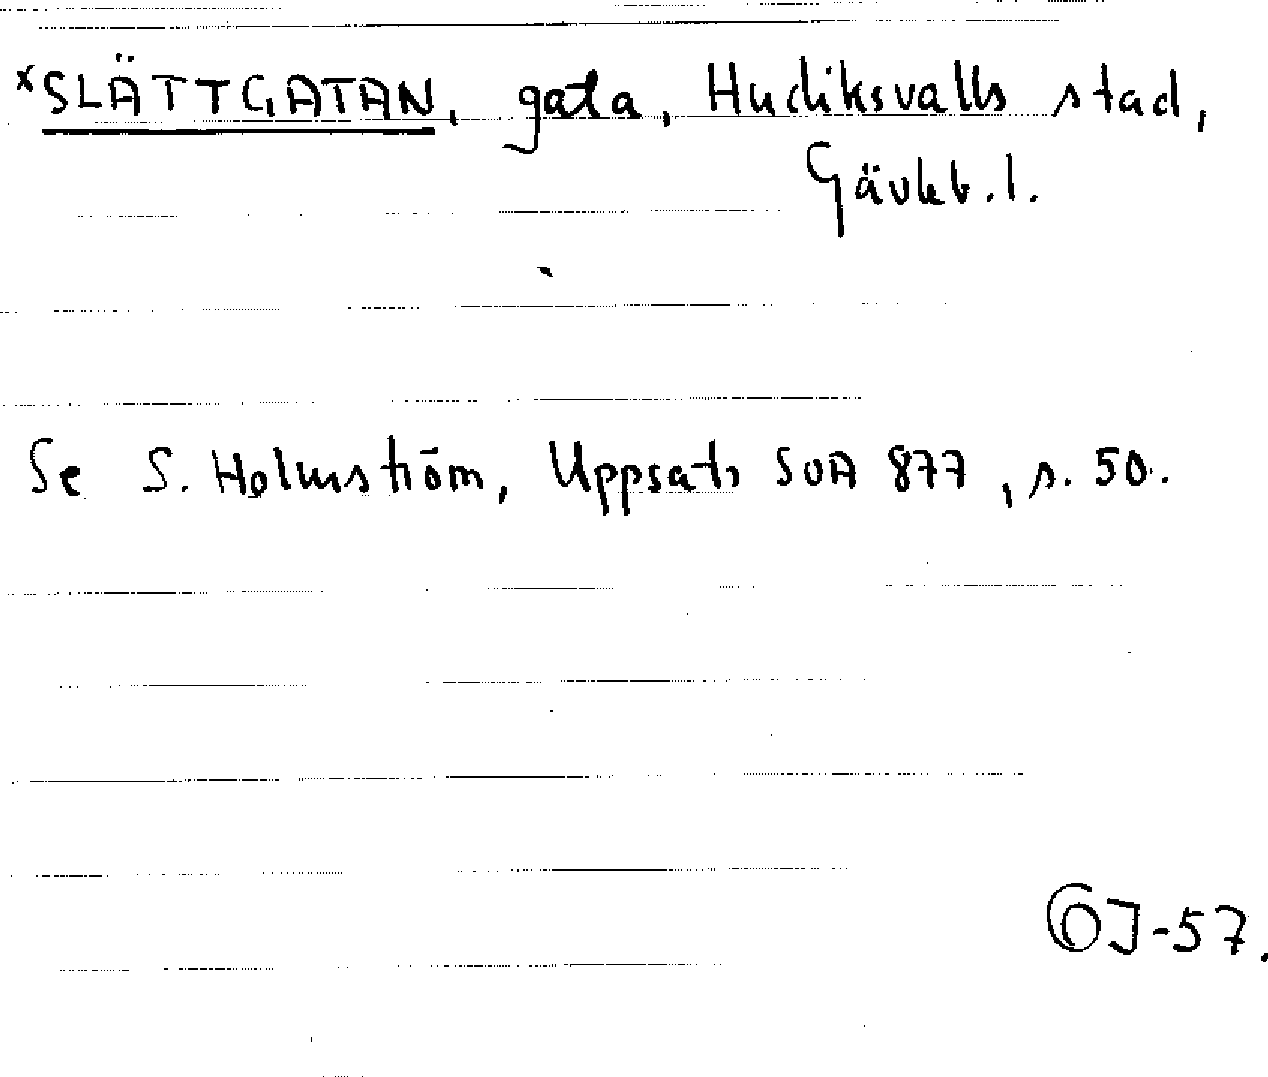 ×SLÄTTGATAN, gata, Hudiksvalls stad,
Gävleb. l.
Se S. Holmström, Uppsats SOA 877, s. 50.
OJ-57.